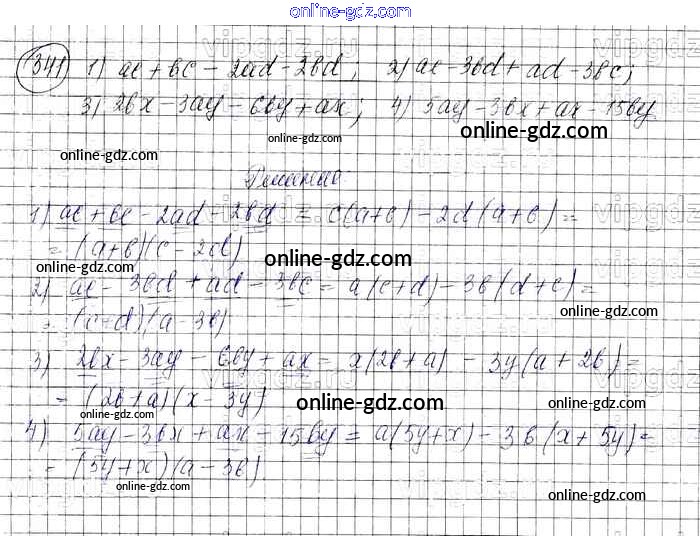 online-gdz.com
341 1) ac + bc - 2ad - 2bd; 2) ac - 3bd + ad - 3bc;
3) 2bx - 3ay - 6by + ax; 4) 5ay - 3bx + ax - 15by
online-gdz.com online-gdz.com online-gdz.com
Решение
1) ac + bc - 2ad - 2bd = c(a+b) - 2d(a+b) =
= (a+b)(c - 2d)
online-gdz.com online-gdz.com online-gdz.com
2) ac - 3bd + ad - 3bc = a(c+d) - 3b(d+c) =
= (c+d)(a - 3b)
online-gdz.com
3) 2bx - 3ay - 6by + ax = a(2b+a) - 3y(a+2b) =
= (2b+a)(x - 3y)
online-gdz.com online-gdz.com online-gdz.com
4) 5ay - 3bx + ax - 15by = a(5y+x) - 3b(x+5y) =
= (5y+x)(a - 3b)
online-gdz.com online-gdz.com